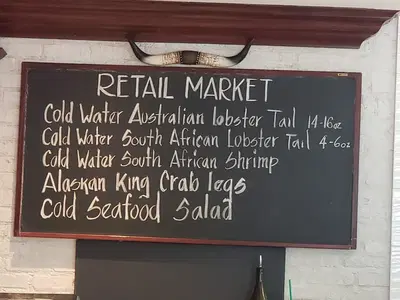 RETAIL MARKET
Cold Water Australian Lobster Tail 14-16oz
Cold Water South African Lobster Tail 4-6oz
Cold Water South African Shrimp
Alaskan King Crab legs
Cold Seafood Salad